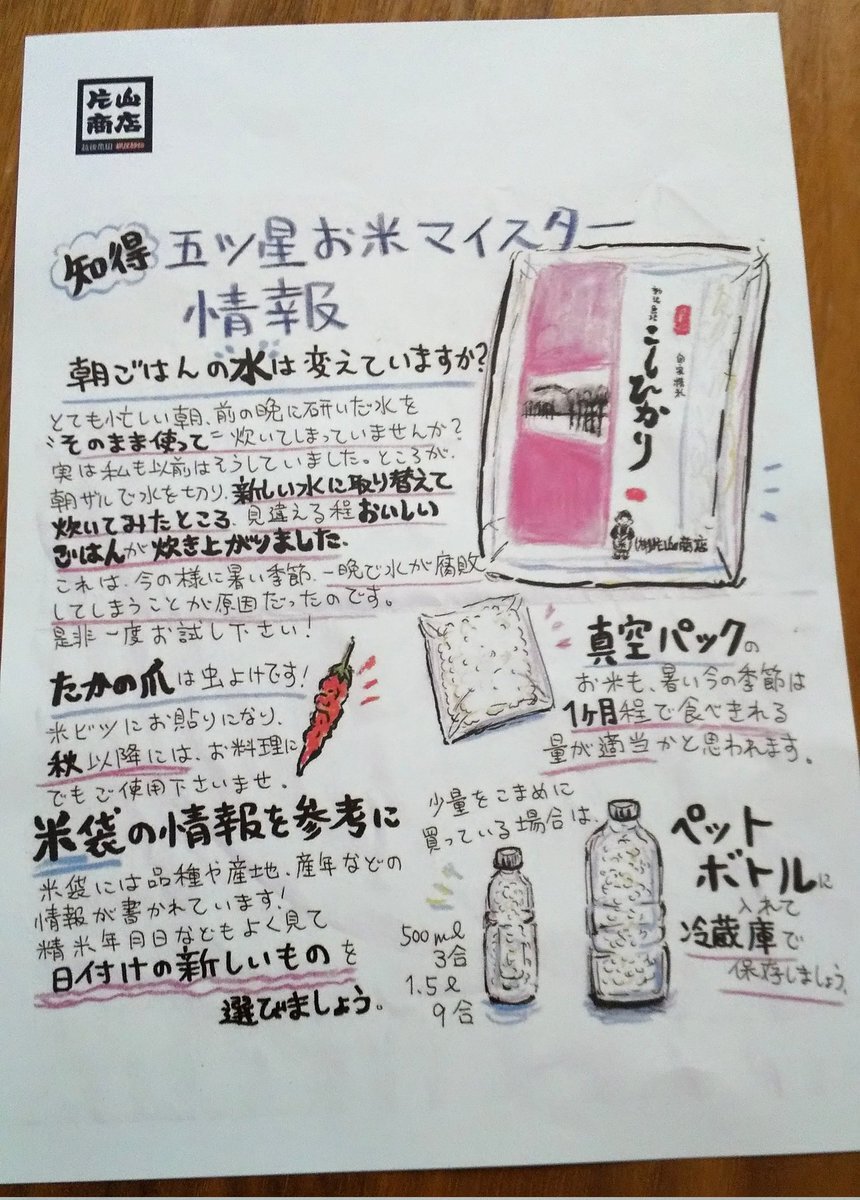 片山
商店
知得 五ツ星お米マイスター
情報
朝ごはんの水は変えていますか?
とても忙しい朝、前の晩に研いだ水を
"そのまま使って"炊いてしまっていませんか?
実は私も以前はそうしていました。ところが、
朝ザルで水を切り、新しい水に取り替えて
炊いてみたところ、見違える程おいしい
ごはんが炊き上がりました。
これは、今の様に暑い季節、一晩で水が腐敗
してしまうことが原因だったのです。
是非一度お試し下さい!
こしひかり
(株)片山商店
たかの爪は虫よけです!
米ビツにお貼りになり、
秋以降には、お料理に
でもご使用下さいませ。
真空パックの
お米も、暑い今の季節は
1ヶ月程で食べきれる
量が適当かと思われます。
米袋の情報を参考に
米袋には品種や産地、産年などの
情報が書かれています!
精米年月日などもよく見て
日付けの新しいものを
選びましょう。
少量をこまめに
買っている場合は、
ペット
ボトルに
入れて
冷蔵庫で
保存しましょう。
500ml
3合
1.5l
9合